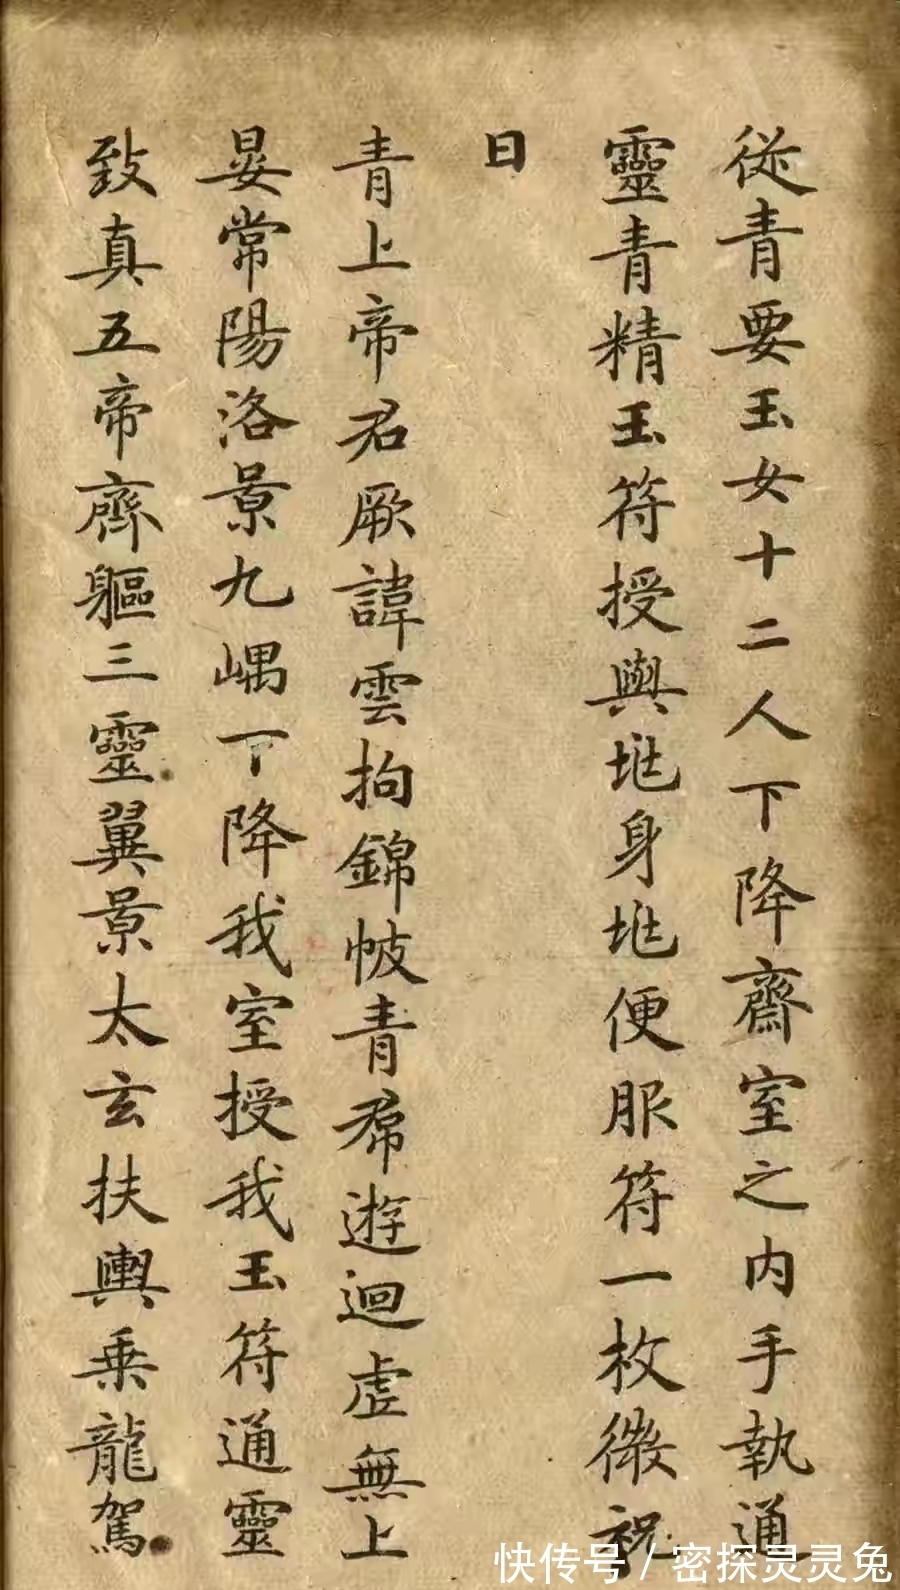 從青要玉女十二人下降齋室之內手執通
靈青精玉符授與兆身兆便服符一枚微祝
曰
青上帝君厥諱雲拘錦帔青帬遊迴虛無上
晏常陽洛景九嵎下降我室授我玉符通靈
致真五帝齊軀三靈翼景太玄扶輿乘龍駕
快传号 / 密探灵灵兔